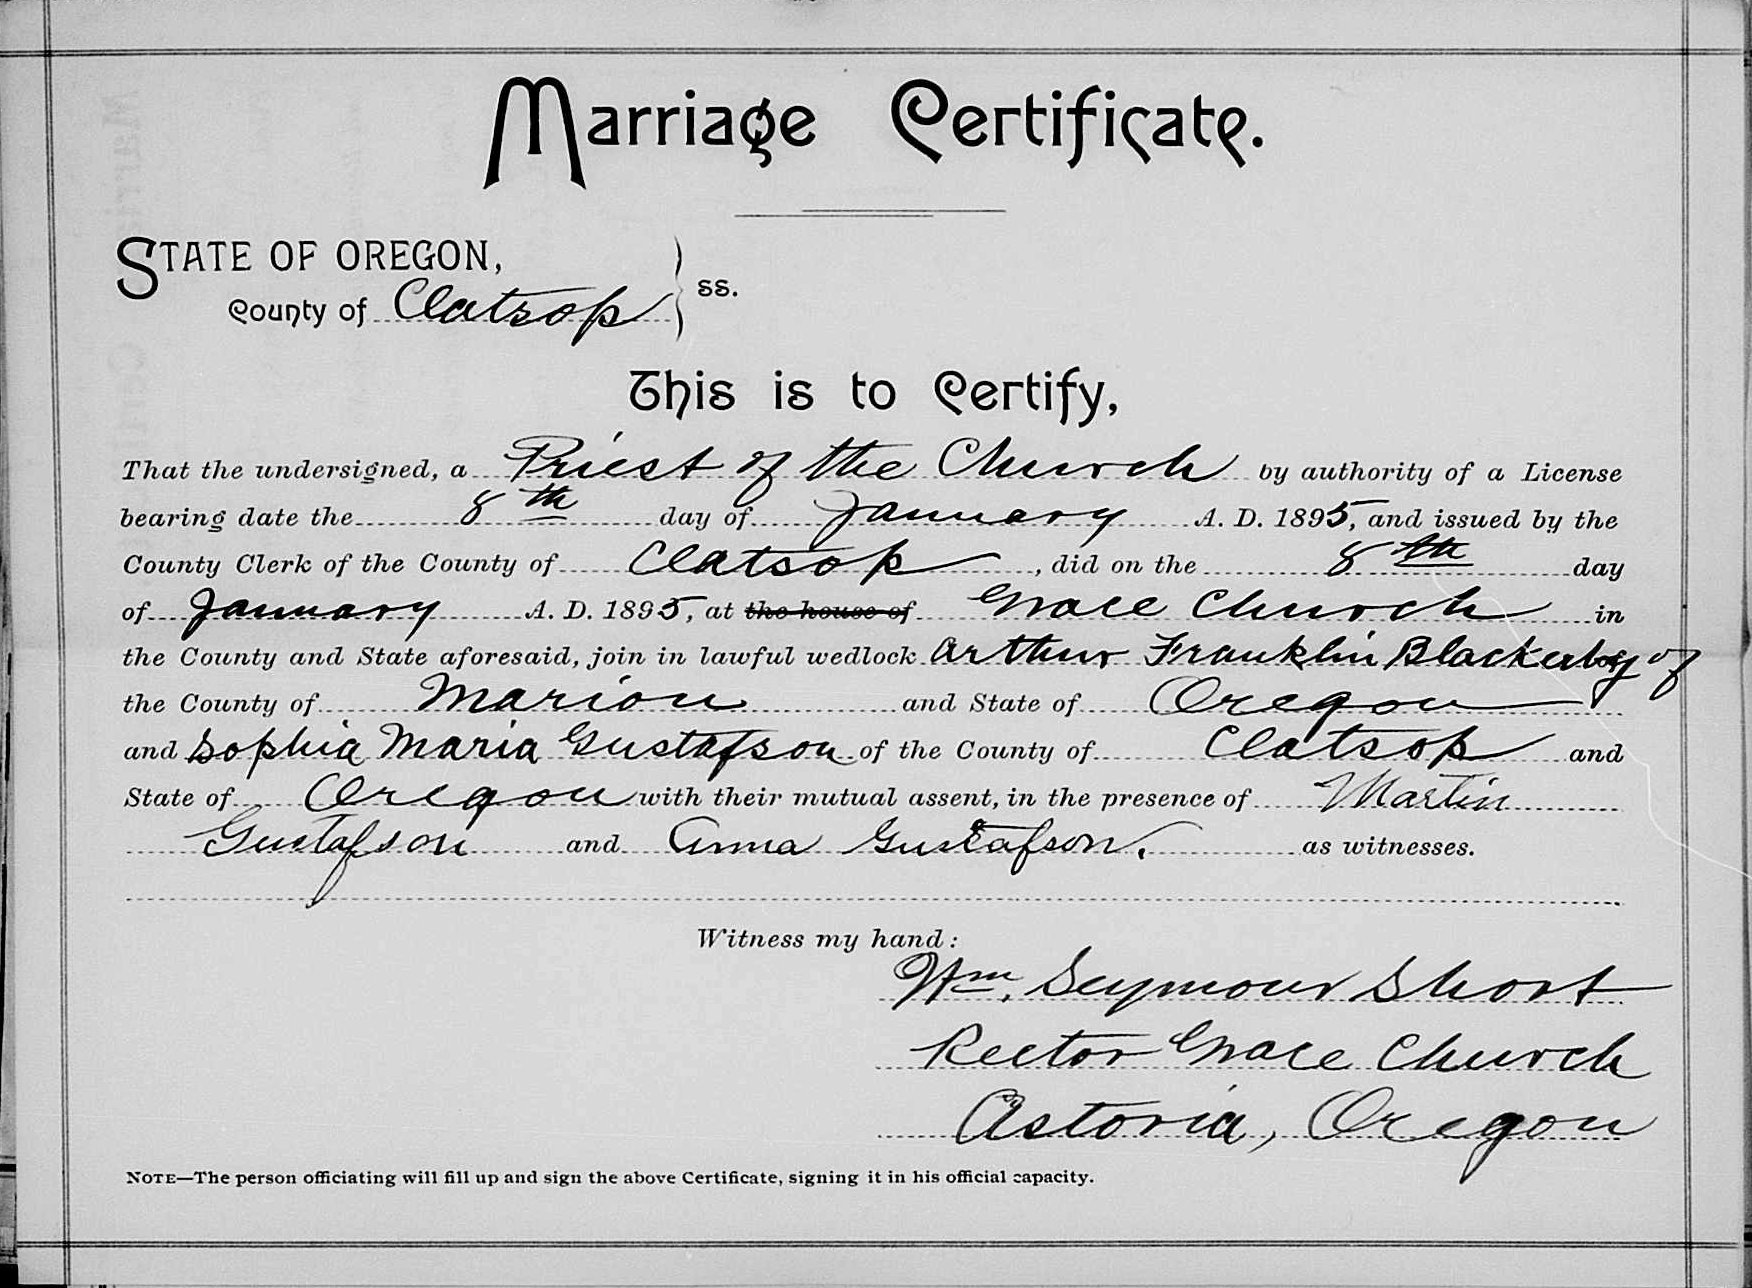 Marriage Certificate.
STATE OF OREGON,
County of Clatsop } ss.
This is to Certify,
That the undersigned, a Priest of the Church by authority of a License
bearing date the 8th day of January A. D. 1895, and issued by the
County Clerk of the County of Clatsop, did on the 8th day
of January A. D. 1895, at the house of Grace Church in
the County and State aforesaid, join in lawful wedlock Arthur Franklin Blackerby of
the County of Marion and State of Oregon
and Sophia Maria Gustafson of the County of Clatsop and
State of Oregon with their mutual assent, in the presence of Martin
Gustafson and Anna Gustafson. as witnesses.
Witness my hand:
Wm. Seymour Short
Rector Grace Church
Astoria, Oregon
NOTE—The person officiating will fill up and sign the above Certificate, signing it in his official capacity.